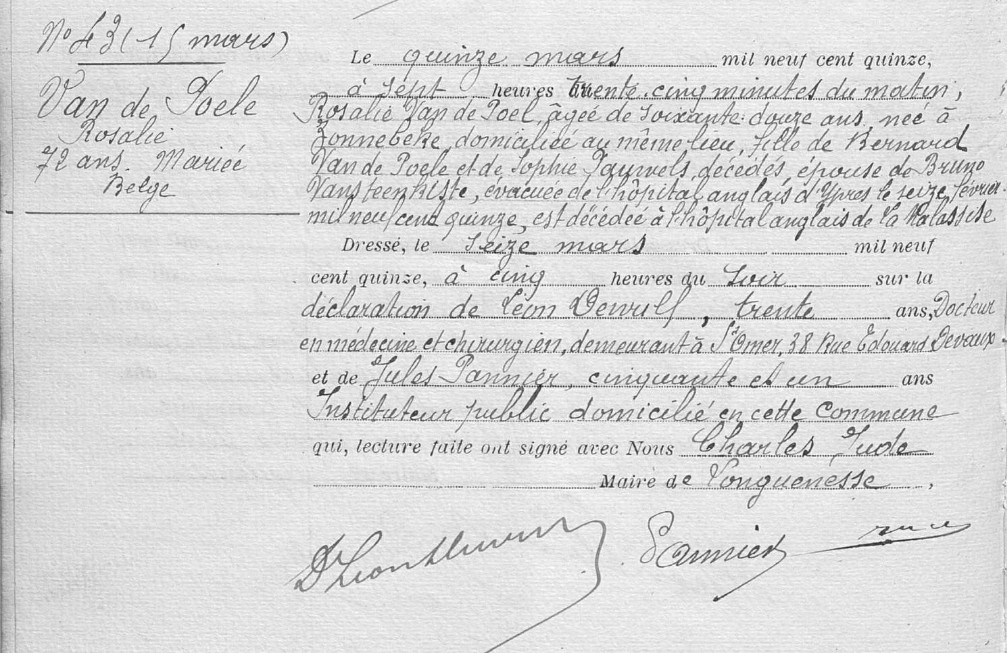 No 43 (15 mars)
Van de Poele
Rosalie
72 ans. Mariée
Belge
Le quinze mars mil neuf cent quinze,
à sept heures trente cinq minutes du matin,
Rosalie Van de Poel, âgée de soixante-douze ans, née à
Zonnebeke, domiciliée au même lieu, fille de Bernard
Van de Poele et de Sophie Pauwels, décédés, épouse de Bruno
Vansteenkiste, évacuée de l'hôpital anglais d'Ypres le seize février
mil neuf cent quinze, est décédée à l'hôpital anglais de la Malassise
Dressé, le seize mars mil neuf
cent quinze, à cinq heures du soir sur la
déclaration de Léon Dewulf, trente ans, Docteur
en médecine et chirurgien, demeurant à St Omer, 38 Rue Edouard Devaux
et de Jules Pannier, cinquante et un ans
Instituteur public domicilié en cette commune
qui, lecture faite ont signé avec Nous Charles Jude
Maire de Longuenesse,
Pannier